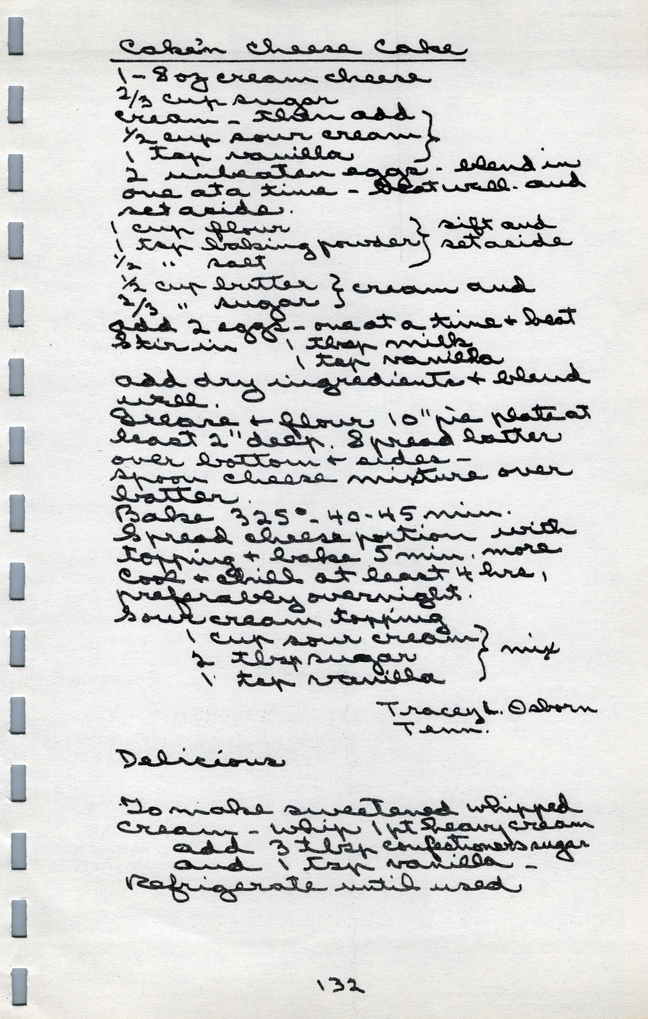 Cake'n Cheese Cake
1 - 8 oz cream cheese
2/3 cup sugar
cream - then add
1/2 cup sour cream
1 tsp vanilla
2 unbeaten eggs - blend in
one at a time - beat well. and
set aside.
1 cup flour } sift and
1 tsp baking powder } set aside
1/2 " salt
1/2 cup butter } cream and
2/3 " sugar }
add 2 eggs - one at a time + beat
Stir in 1 tbsp milk
1 tsp vanilla
add dry ingredients + blend
well.
Grease + flour 10" pie plate at
least 2" deep. Spread batter
over bottom + sides -
spoon cheese mixture over
batter.
Bake 325° - 40-45 min.
Spread cheese portion with
topping + bake 5 min. more
Cool + chill at least 4 hrs,
preferably overnight.
Sour cream topping
1 cup sour cream
2 tbsp sugar } mix
1 tsp vanilla
Tracey L. Osborn
Tenn.
Delicious
To make sweetened whipped
cream - whip 1 pt heavy cream
add 3 tbsp confectioners sugar
and 1 tsp vanilla -
Refrigerate until used
132